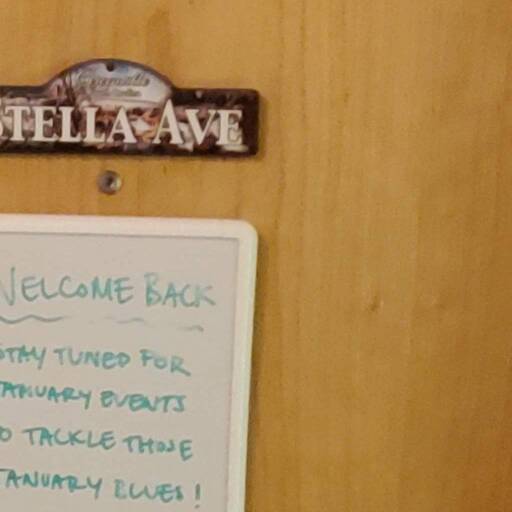 STELLA AVE
WELCOME BACK
STAY TUNED FOR
JANUARY EVENTS
TO TACKLE THOSE
JANUARY BLUES!